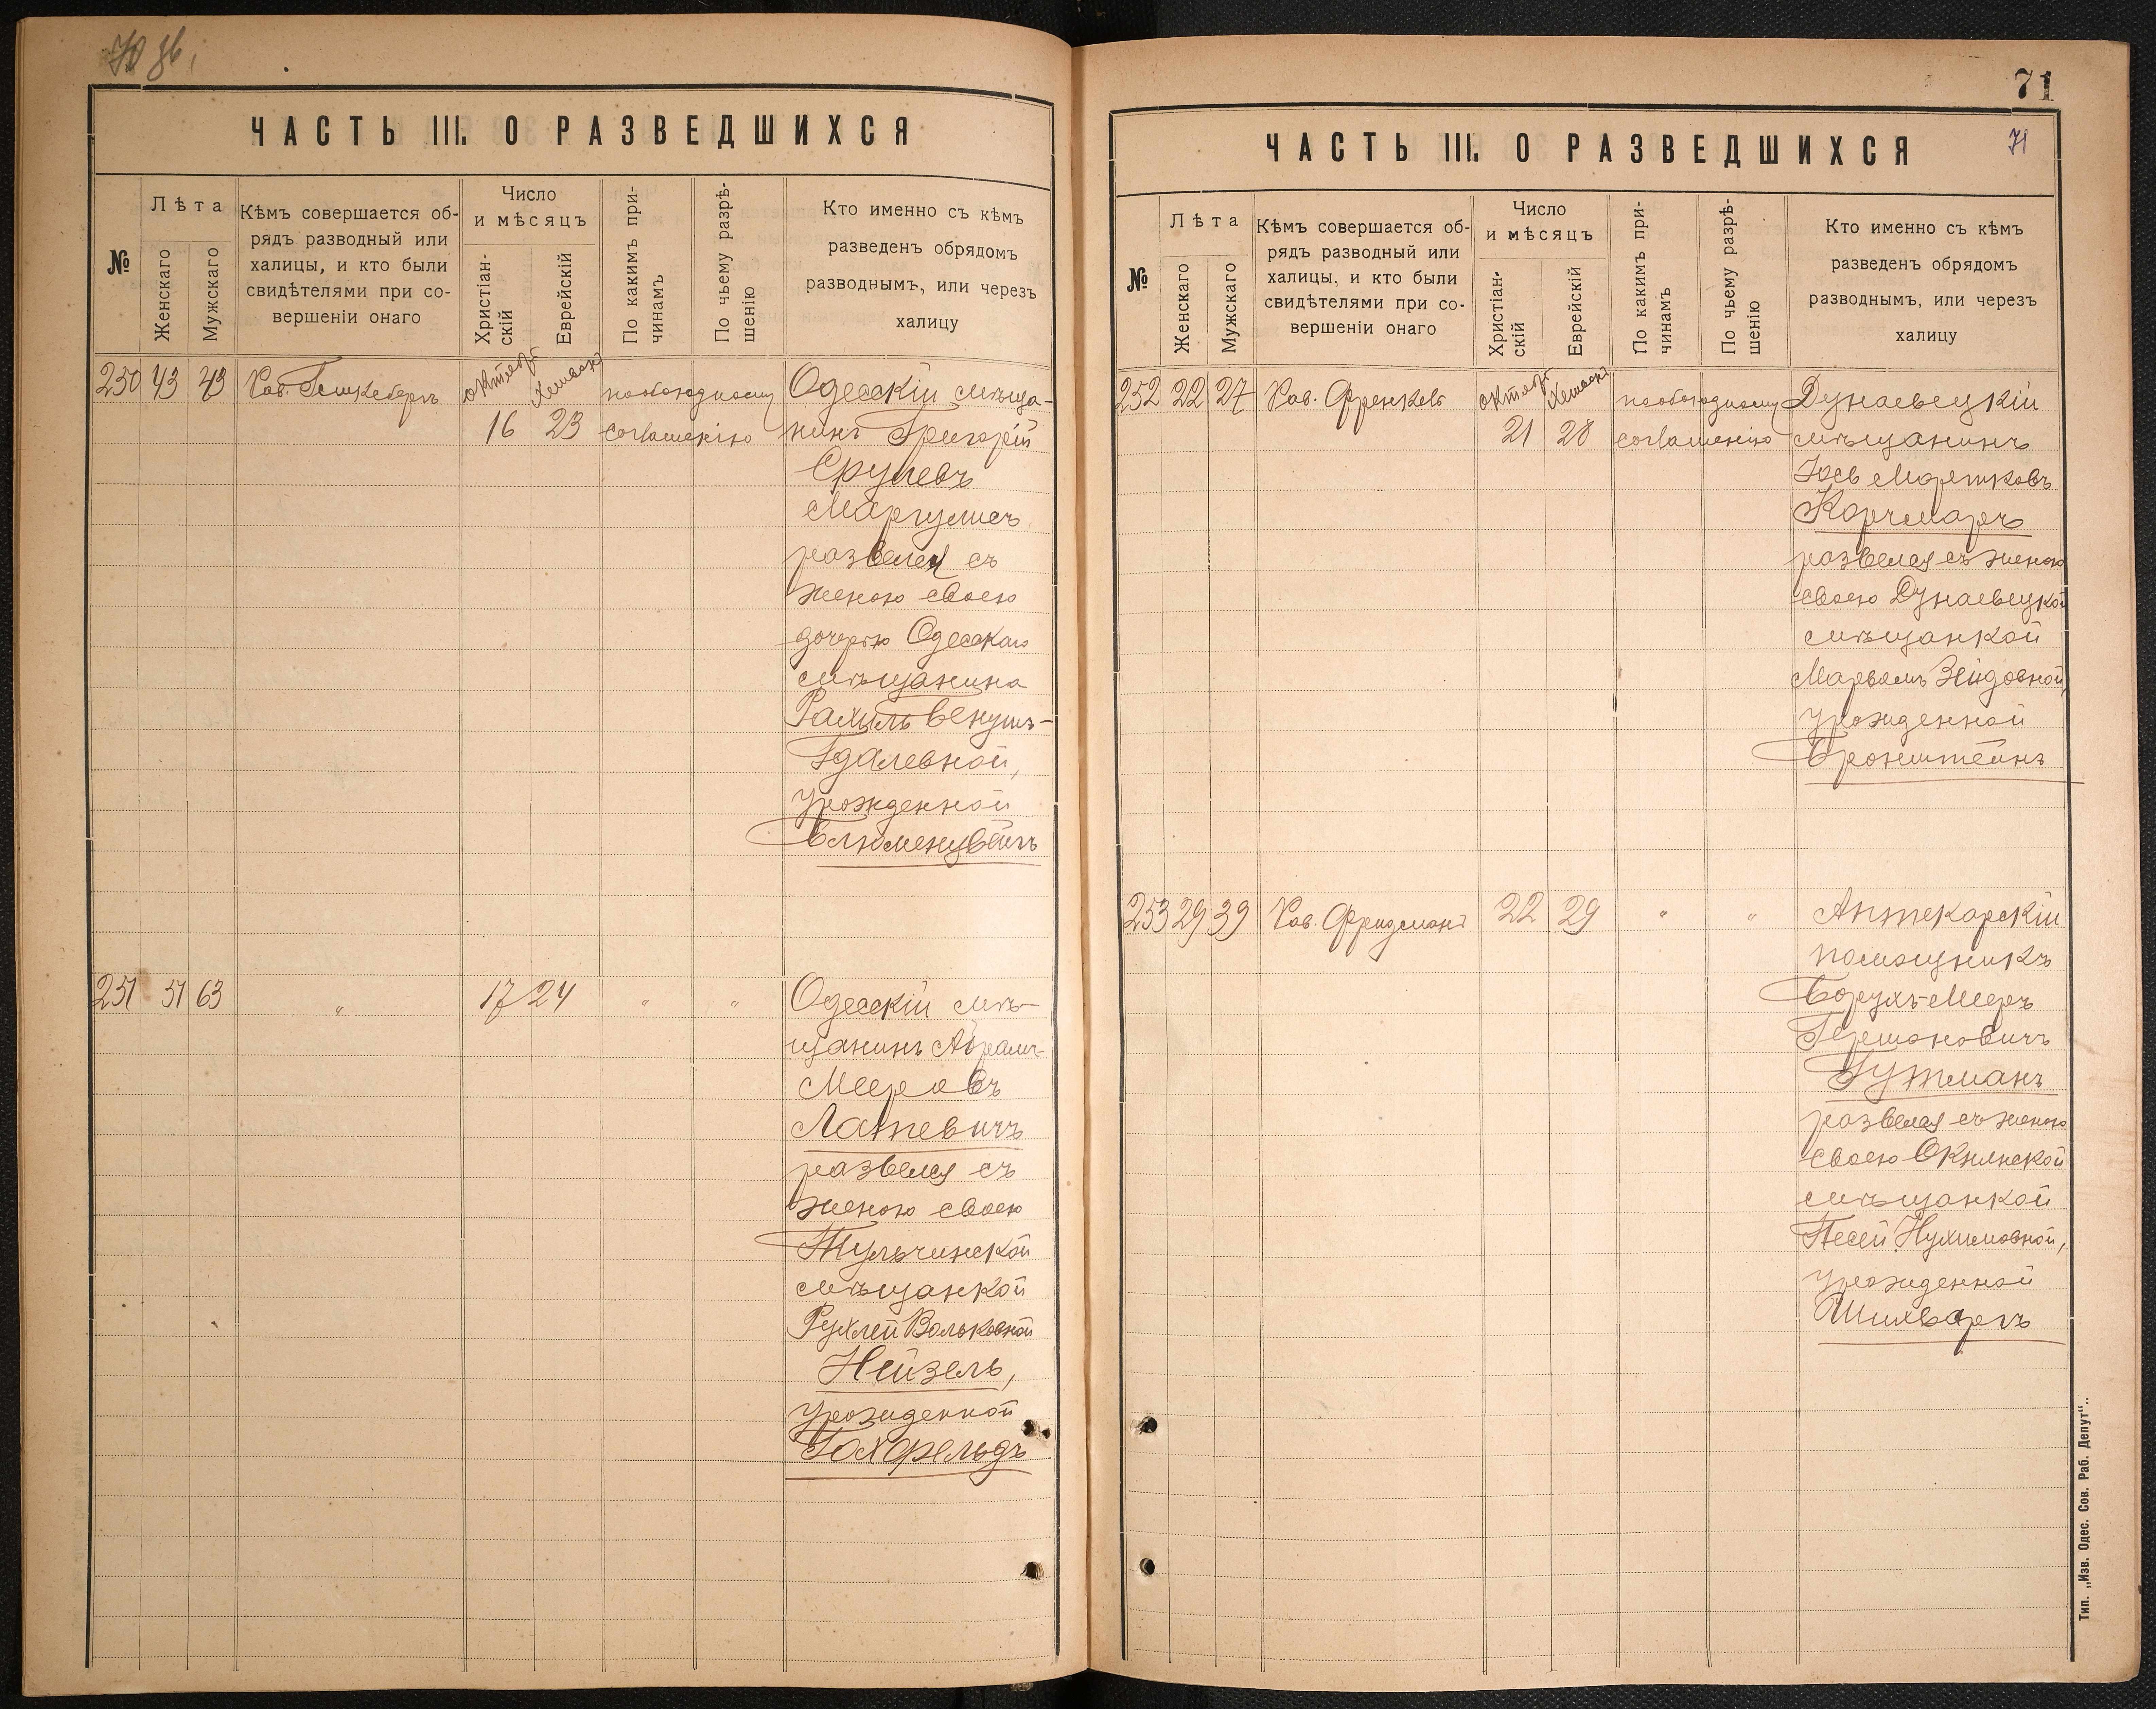 70 об.
ЧАСТЬ III. О РАЗВЕДШИХСЯ
№
Лѣта
Женскаго
Мужскаго
Кѣмъ совершается об-
рядъ разводный или
халицы, и кто были
свидѣтелями при со-
вершеніи онаго
Число
и мѣсяцъ
Христіан-
скій
Еврейскій
По какимъ при-
чинамъ
По чьему разрѣ-
шенію
Кто именно съ кѣмъ
разведенъ обрядомъ
разводнымъ, или черезъ
халицу
250 43 43 Рав. октяб. Хешвана пообоюдному Одесскій мѣща-
16 23 соглашенію нинъ Григорій
Срулевъ
Маргулисъ
развелся съ
женою своею
дочерью Одесскаго
мѣщанина
Рахиль Венушъ-
Гдалевной,
урожденной
Блюменцвейгъ
251 51 63 " 17 24 " " Одесскій мѣ-
щанинъ Абрамъ-
Мееровъ
Лотневичъ
развелся съ
женою своею
Тульчинской
мѣщанкой
Рухлей Вольковной
Нейзель,
урожденной
Гохфельдъ
71
ЧАСТЬ III. О РАЗВЕДШИХСЯ
71
№
Лѣта
Женскаго
Мужскаго
Кѣмъ совершается об-
рядъ разводный или
халицы, и кто были
свидѣтелями при со-
вершеніи онаго
Число
и мѣсяцъ
Христіан-
скій
Еврейскій
По какимъ при-
чинамъ
По чьему разрѣ-
шенію
Кто именно съ кѣмъ
разведенъ обрядомъ
разводнымъ, или черезъ
халицу
252 22 27 Рав. Френкель октяб. Хешвана пообоюдному Дунаевецкій
21 28 соглашенію мѣщанинъ
Іось Мортковъ
Корчмаръ
развелся съ женою
своею Дунаевецкой
мѣщанкой
Марьямъ Зейдовной,
урожденной
Бронштейнъ
253 29 39 Рав. Фридманъ 22 29 " " Аптекарскій
помощникъ
Борухъ-Мееръ
Гершоновичъ
Гутманъ
развелся съ женою
своею Окнянской
мѣщанкой
Песей Нухимовной,
урожденной
Шихваргъ
Тип. „Изв. Одес. Сов. Раб. Депут“..